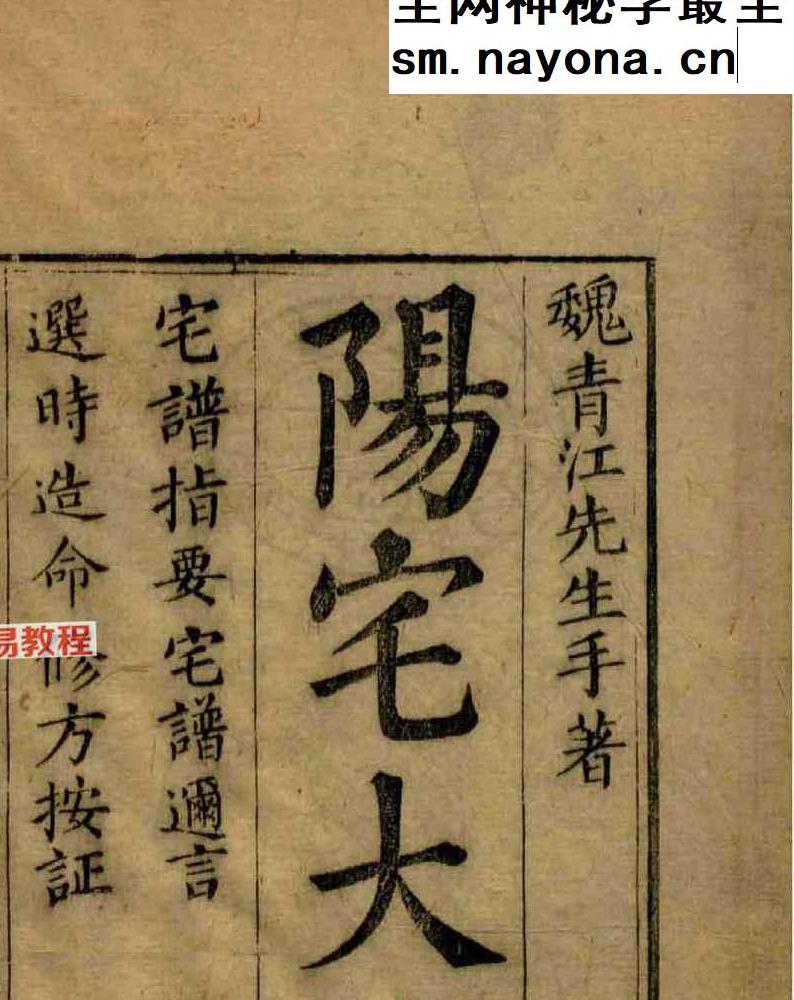 全网神秘学最全
sm.nayona.cn
魏青江先生手著
陽宅大
宅譜指要宅譜邇言
選時造命修方按証
易教程